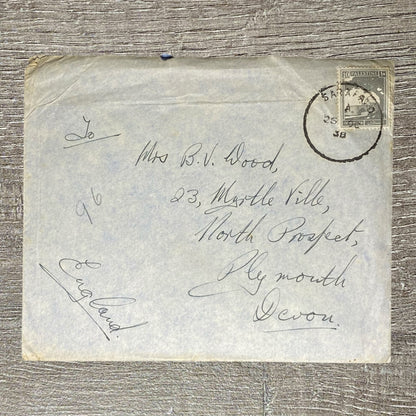 PALESTINE
SARAFAND
A
38
To
Mrs B. V. Wood,
23, Myrtle Ville,
North Prospect,
Plymouth
Devon.
England.
96